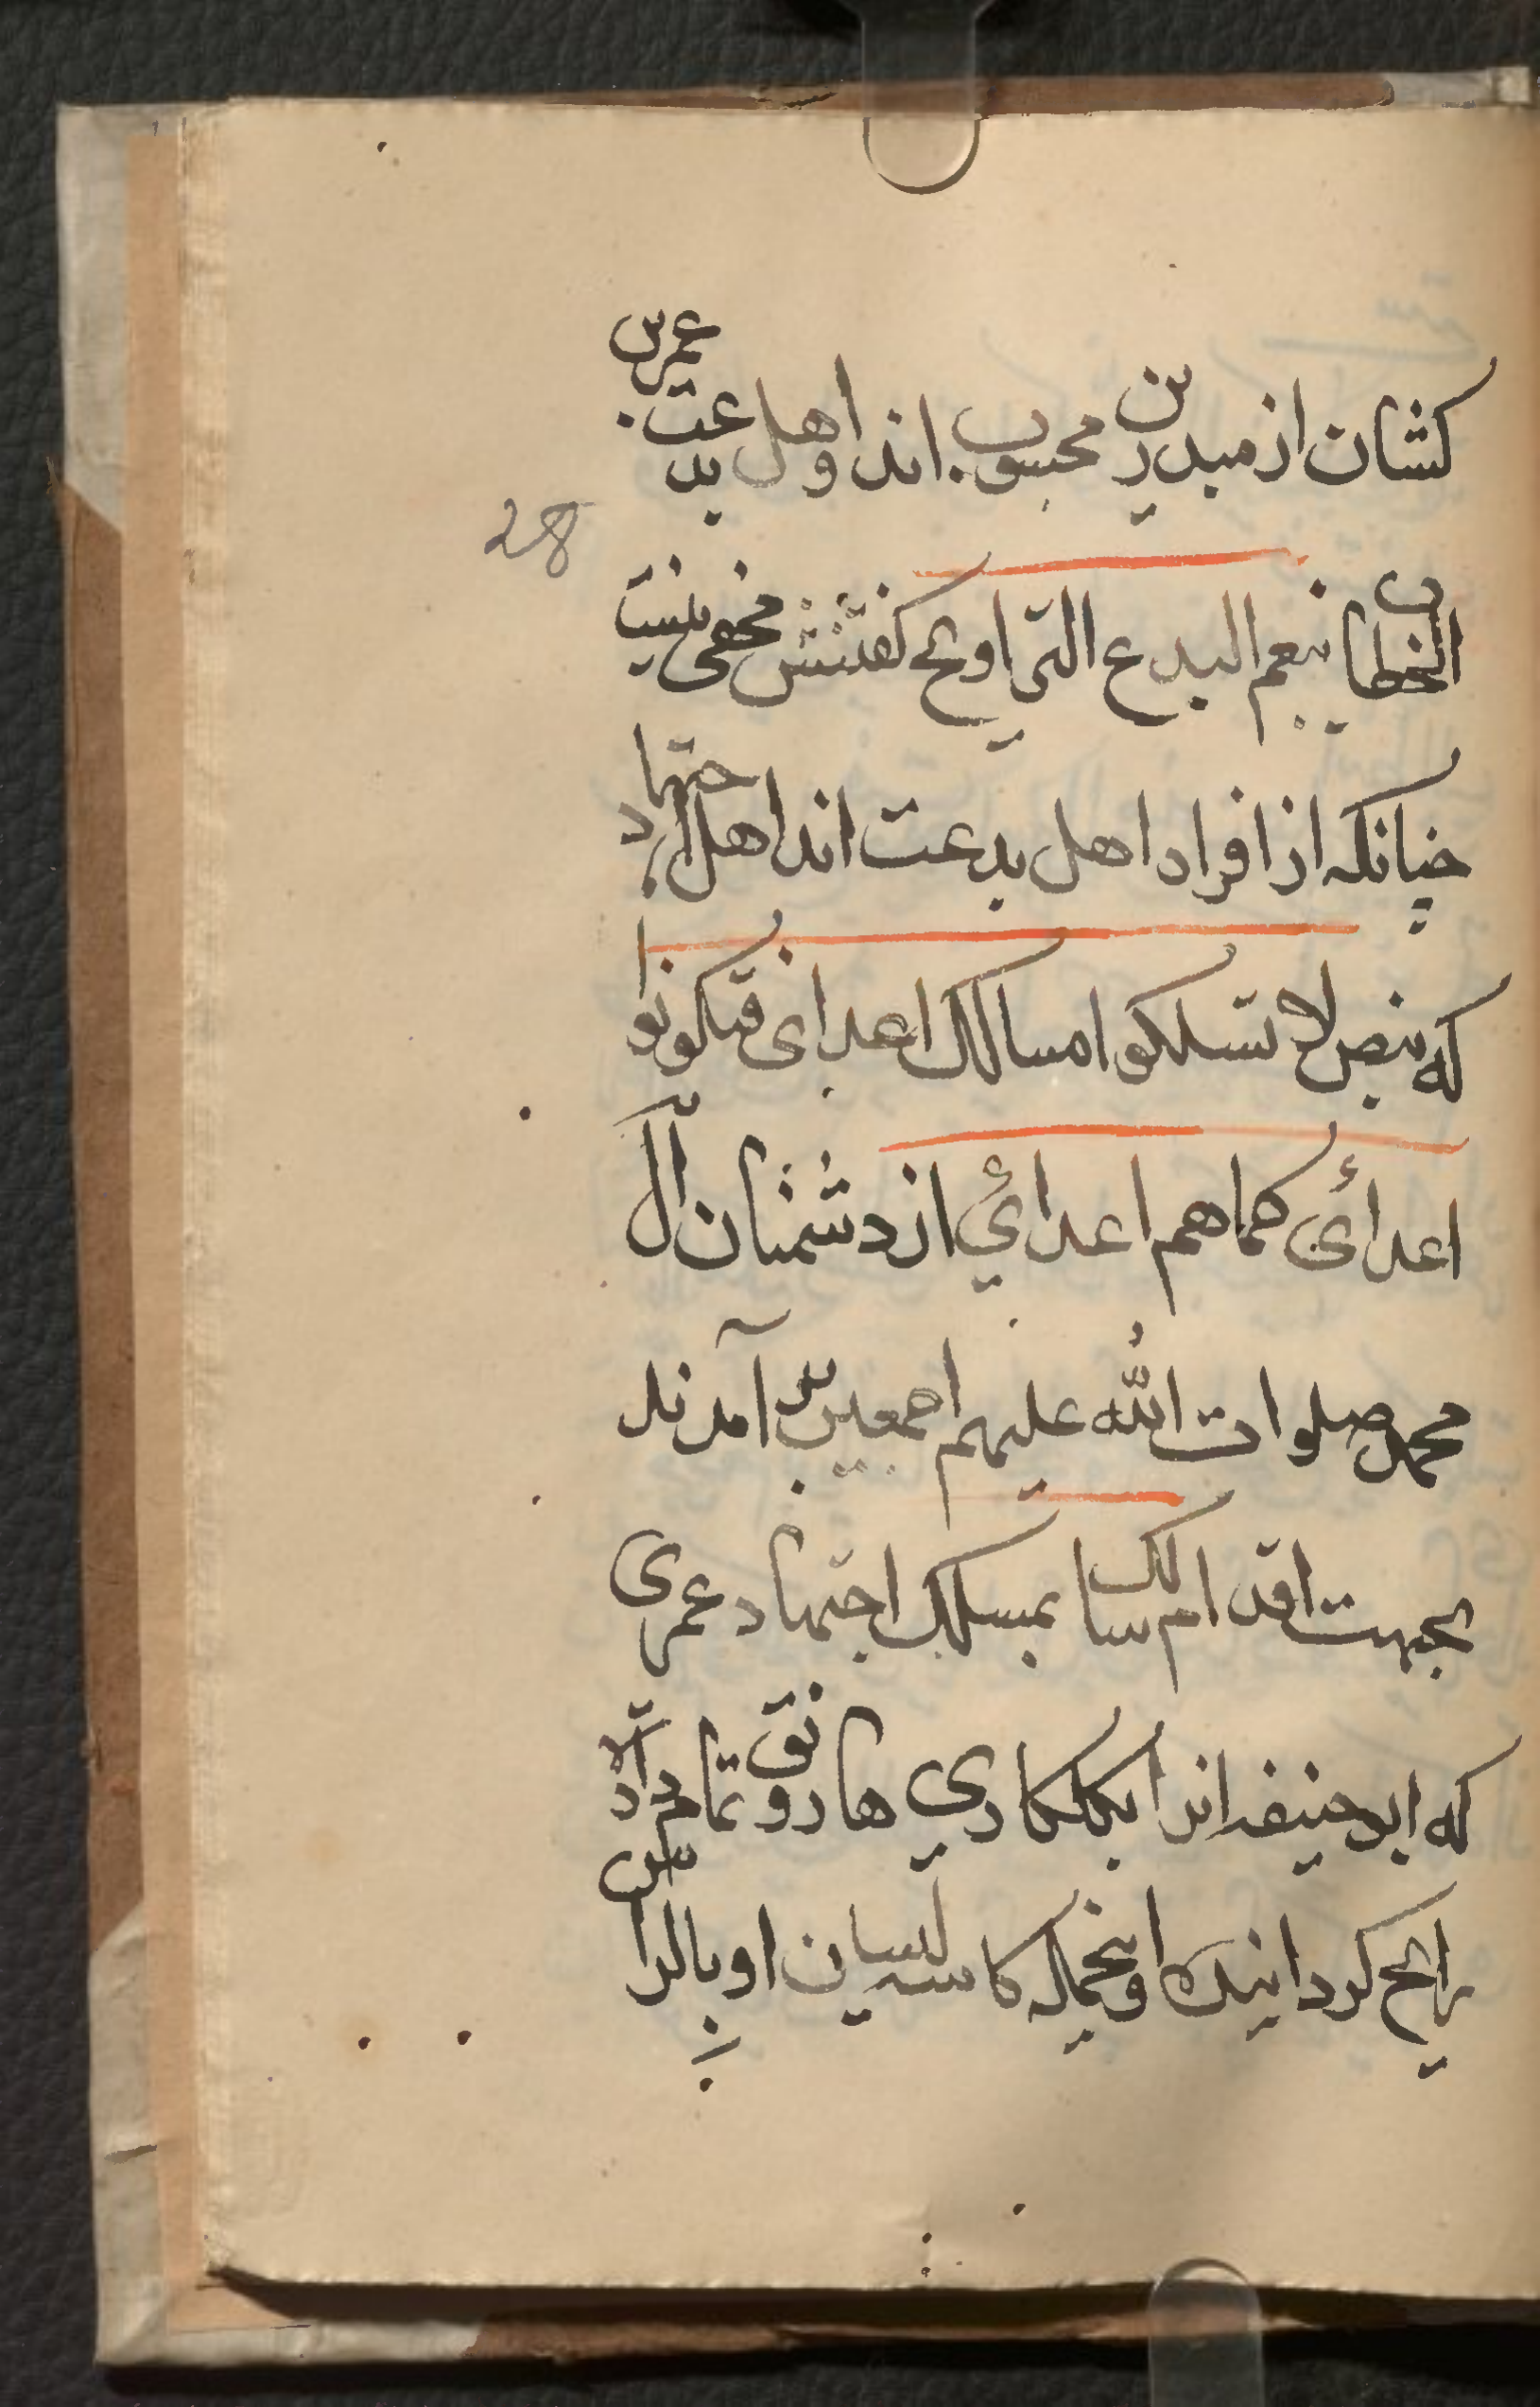 کشان از مبدرین محسوب اند و اهل بدعت عمر بن
الخطاب نعم البدع التی او بح کفتنش مخفی نیست
چنانکه از افراد اهل بدعت اند اهل اجتهاد
28
که بنص لا تسلکوا مسالک اعدائی فتکونوا
اعدائی کما هم اعدائي از دشمنان آل
محمد صلوات الله علیهم اجمعین بر آمدند
بجهت اقدام سالک بمسلک اجتهاد عمری
که ابو حنیفه اند ا بکلکاري ها رونق تمام داد
رایج کردانیده و بخیاله کاسه لیسان او بالراس